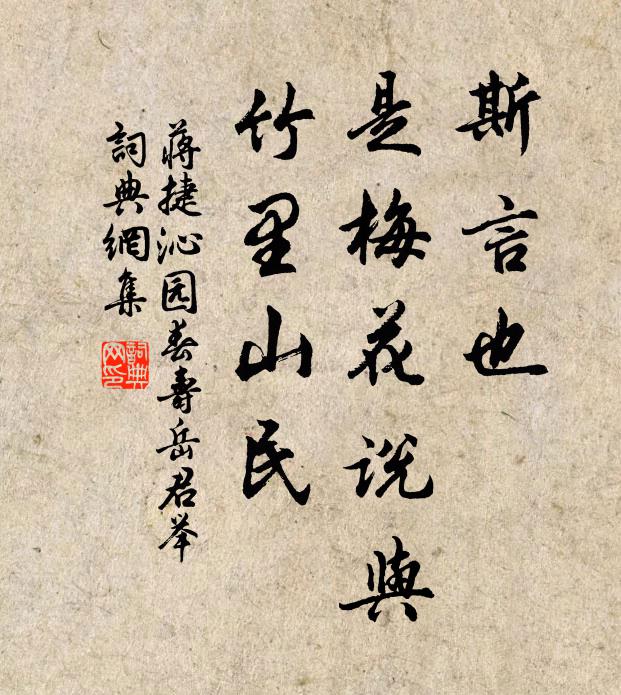 斯言也
是梅花说與
竹里山民
蒋捷沁园春壽岳君举
詞典網集
詞典
网印